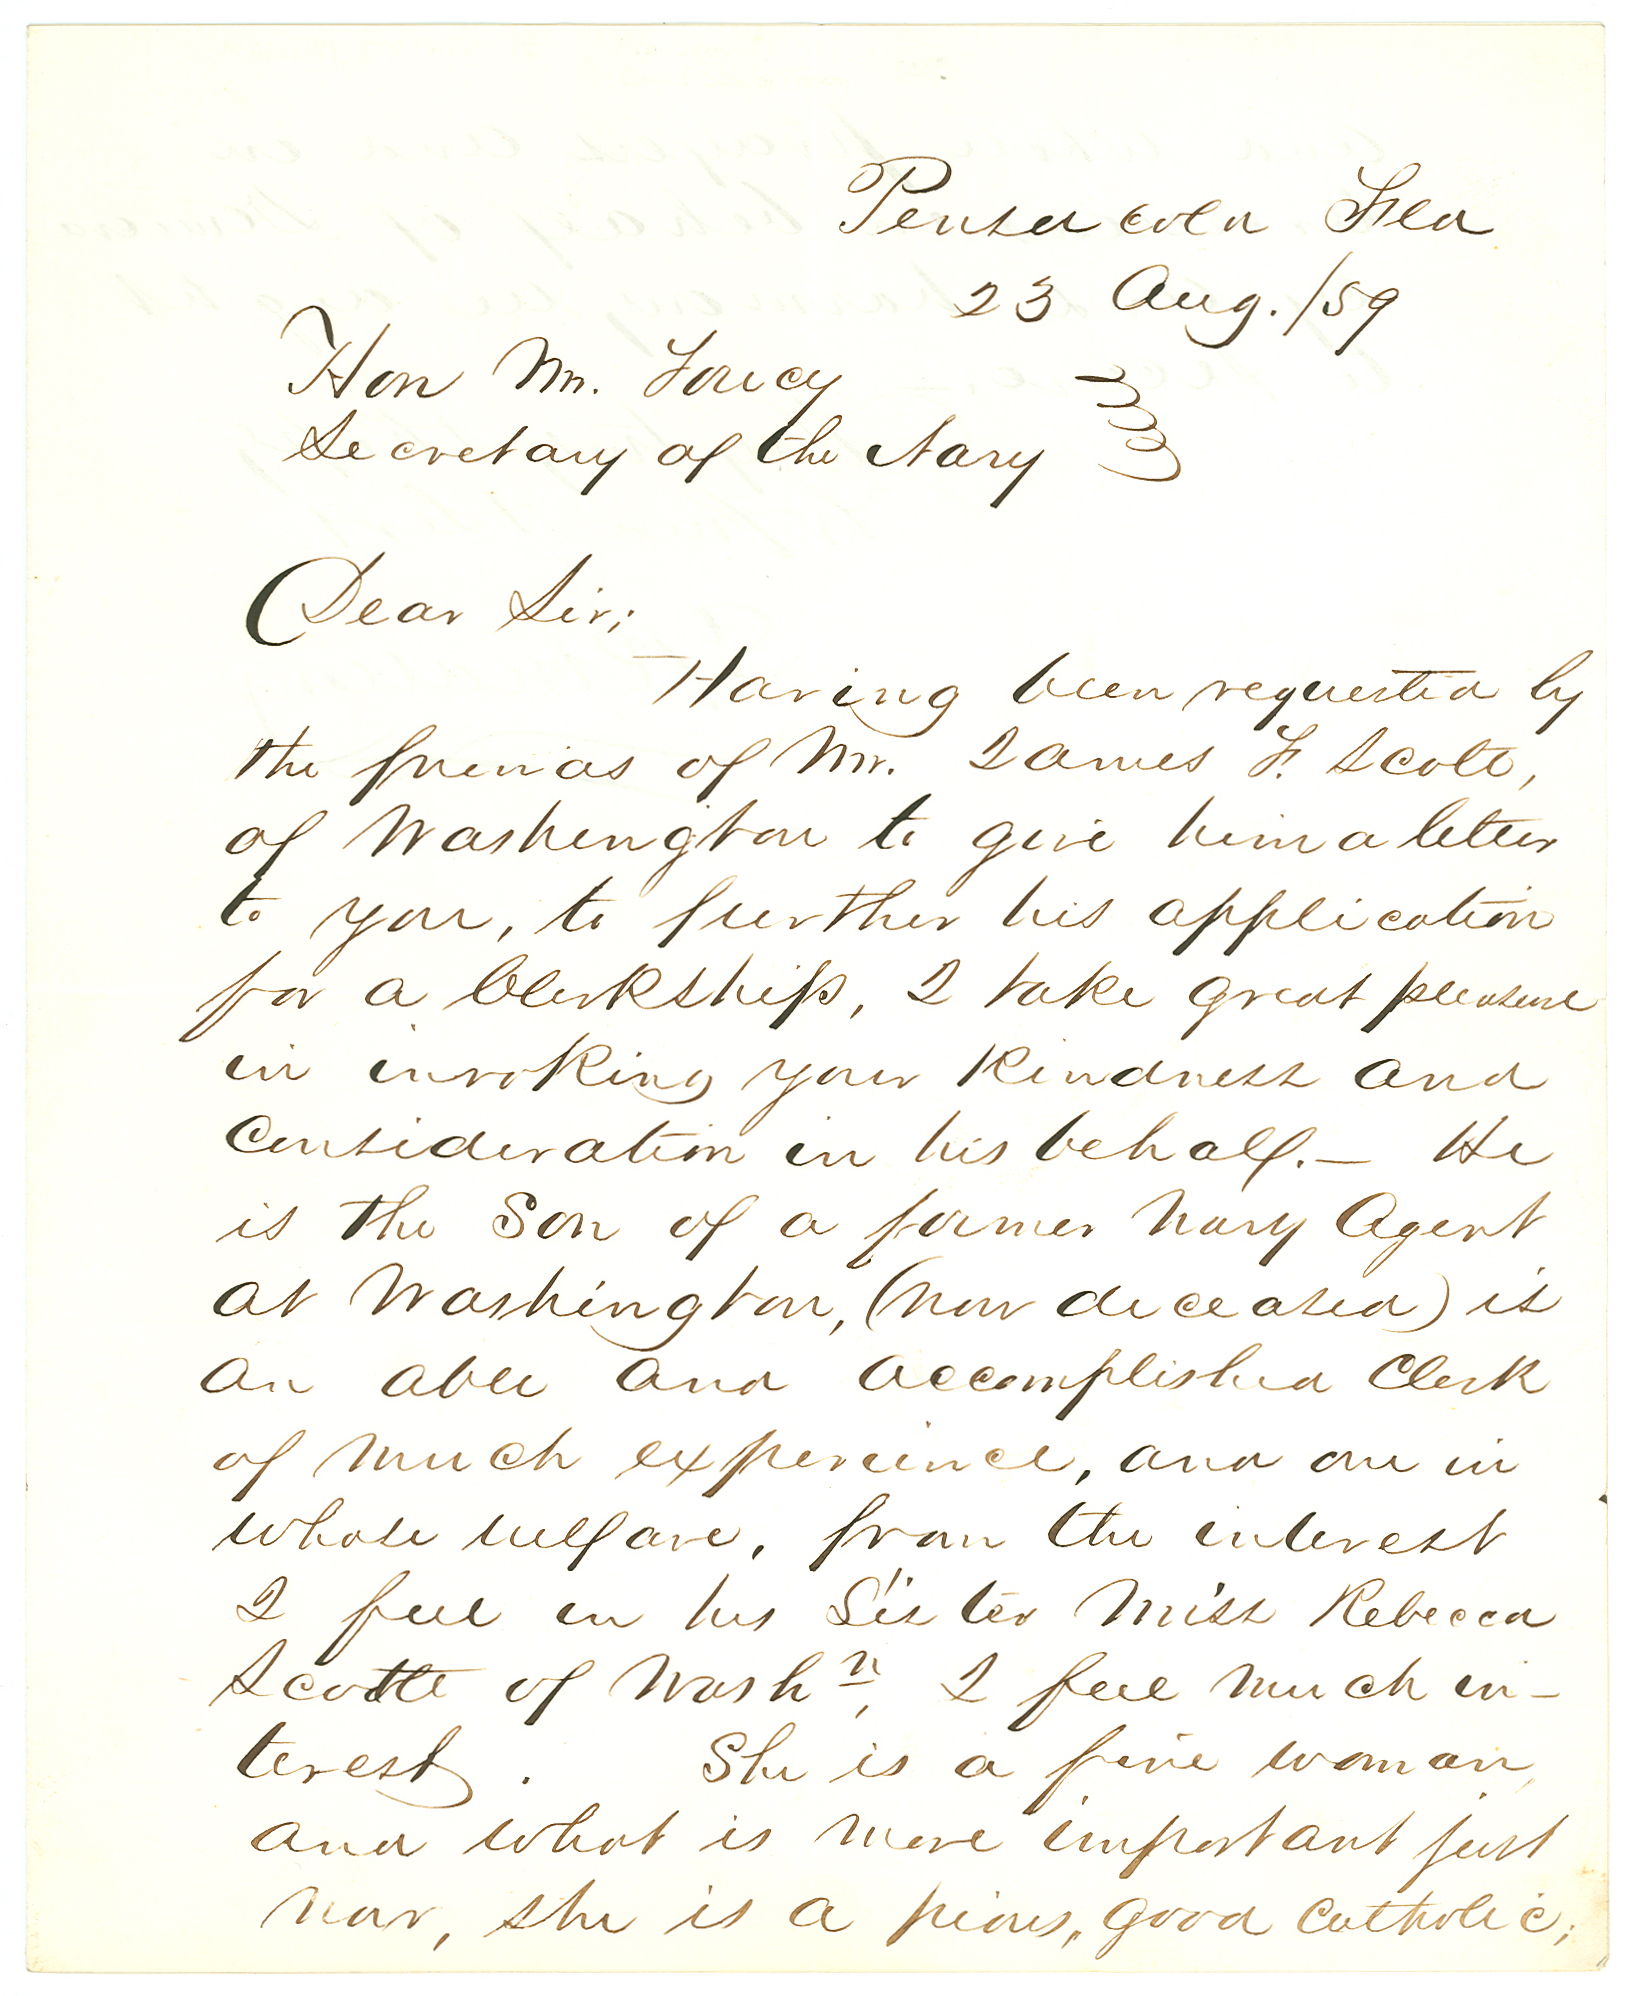 Pensacola Fla
23 Aug. /59
Hon Mr. Toucy
Secretary of the Navy
Dear Sir;
Having been requested by
the friends of Mr. James F. Scott,
of Washington to give him a letter
to you, to further his application
for a Clerkship, I take great pleasure
in invoking your kindness and
consideration in his behalf. — He
is the Son of a former Navy Agent
at Washington, (now deceased) is
an able and accomplished Clerk
of much experience, and one in
whose welfare, from the interest
I feel in his Sister Miss Rebecca
Scott of Washn, I feel much in-
terest. She is a fine woman,
and what is more important just
now, she is a pious, good Catholic;